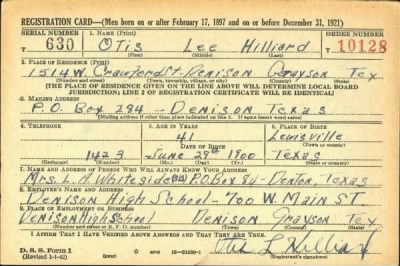 REGISTRATION CARD—(Men born on or after February 17, 1897 and on or before December 31, 1921)
SERIAL NUMBER 1. NAME (Print) ORDER NUMBER
630 Otis Lee Hilliard 10128
(First) (Middle) (Last)
2. PLACE OF RESIDENCE (Print)
1514 W. Crawford St - Denison Grayson Tex
(Number and street) (Town, township, village, or city) (County) (State)
[THE PLACE OF RESIDENCE GIVEN ON THE LINE ABOVE WILL DETERMINE LOCAL BOARD
JURISDICTION; LINE 2 OF REGISTRATION CERTIFICATE WILL BE IDENTICAL]
3. MAILING ADDRESS
P.O. Box 284 - Denison Texas
[Mailing address if other than place indicated on line 2. If same insert word same]
4. TELEPHONE 5. AGE IN YEARS 6. PLACE OF BIRTH
41 Louisville
DATE OF BIRTH (Town or county)
1423 June 29th 1900 Texas
(Exchange) (Number) (Mo.) (Day) (Yr.) (State or country)
7. NAME AND ADDRESS OF PERSON WHO WILL ALWAYS KNOW YOUR ADDRESS
Mrs. L. A. Whiteside P.O. Box 84 - Denton, Texas
8. EMPLOYER'S NAME AND ADDRESS
Denison High School - 700 W. Main ST
9. PLACE OF EMPLOYMENT OR BUSINESS
Denison High School Denison Grayson Tex
(Number and street or R. F. D. number) (Town) (County) (State)
I AFFIRM THAT I HAVE VERIFIED ABOVE ANSWERS AND THAT THEY ARE TRUE.
D. S. S. Form 1
(Revised 1-1-42) 16—21630-1 (Registrant's signature)
Otis L Hilliard